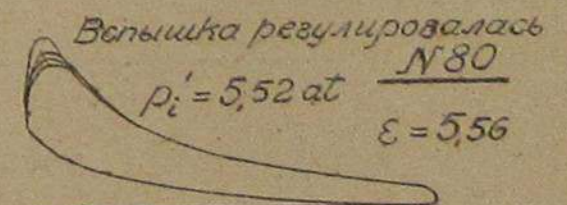 Вспышка регулировалась
N80
pᵢ' = 5,52 at
ε = 5,56